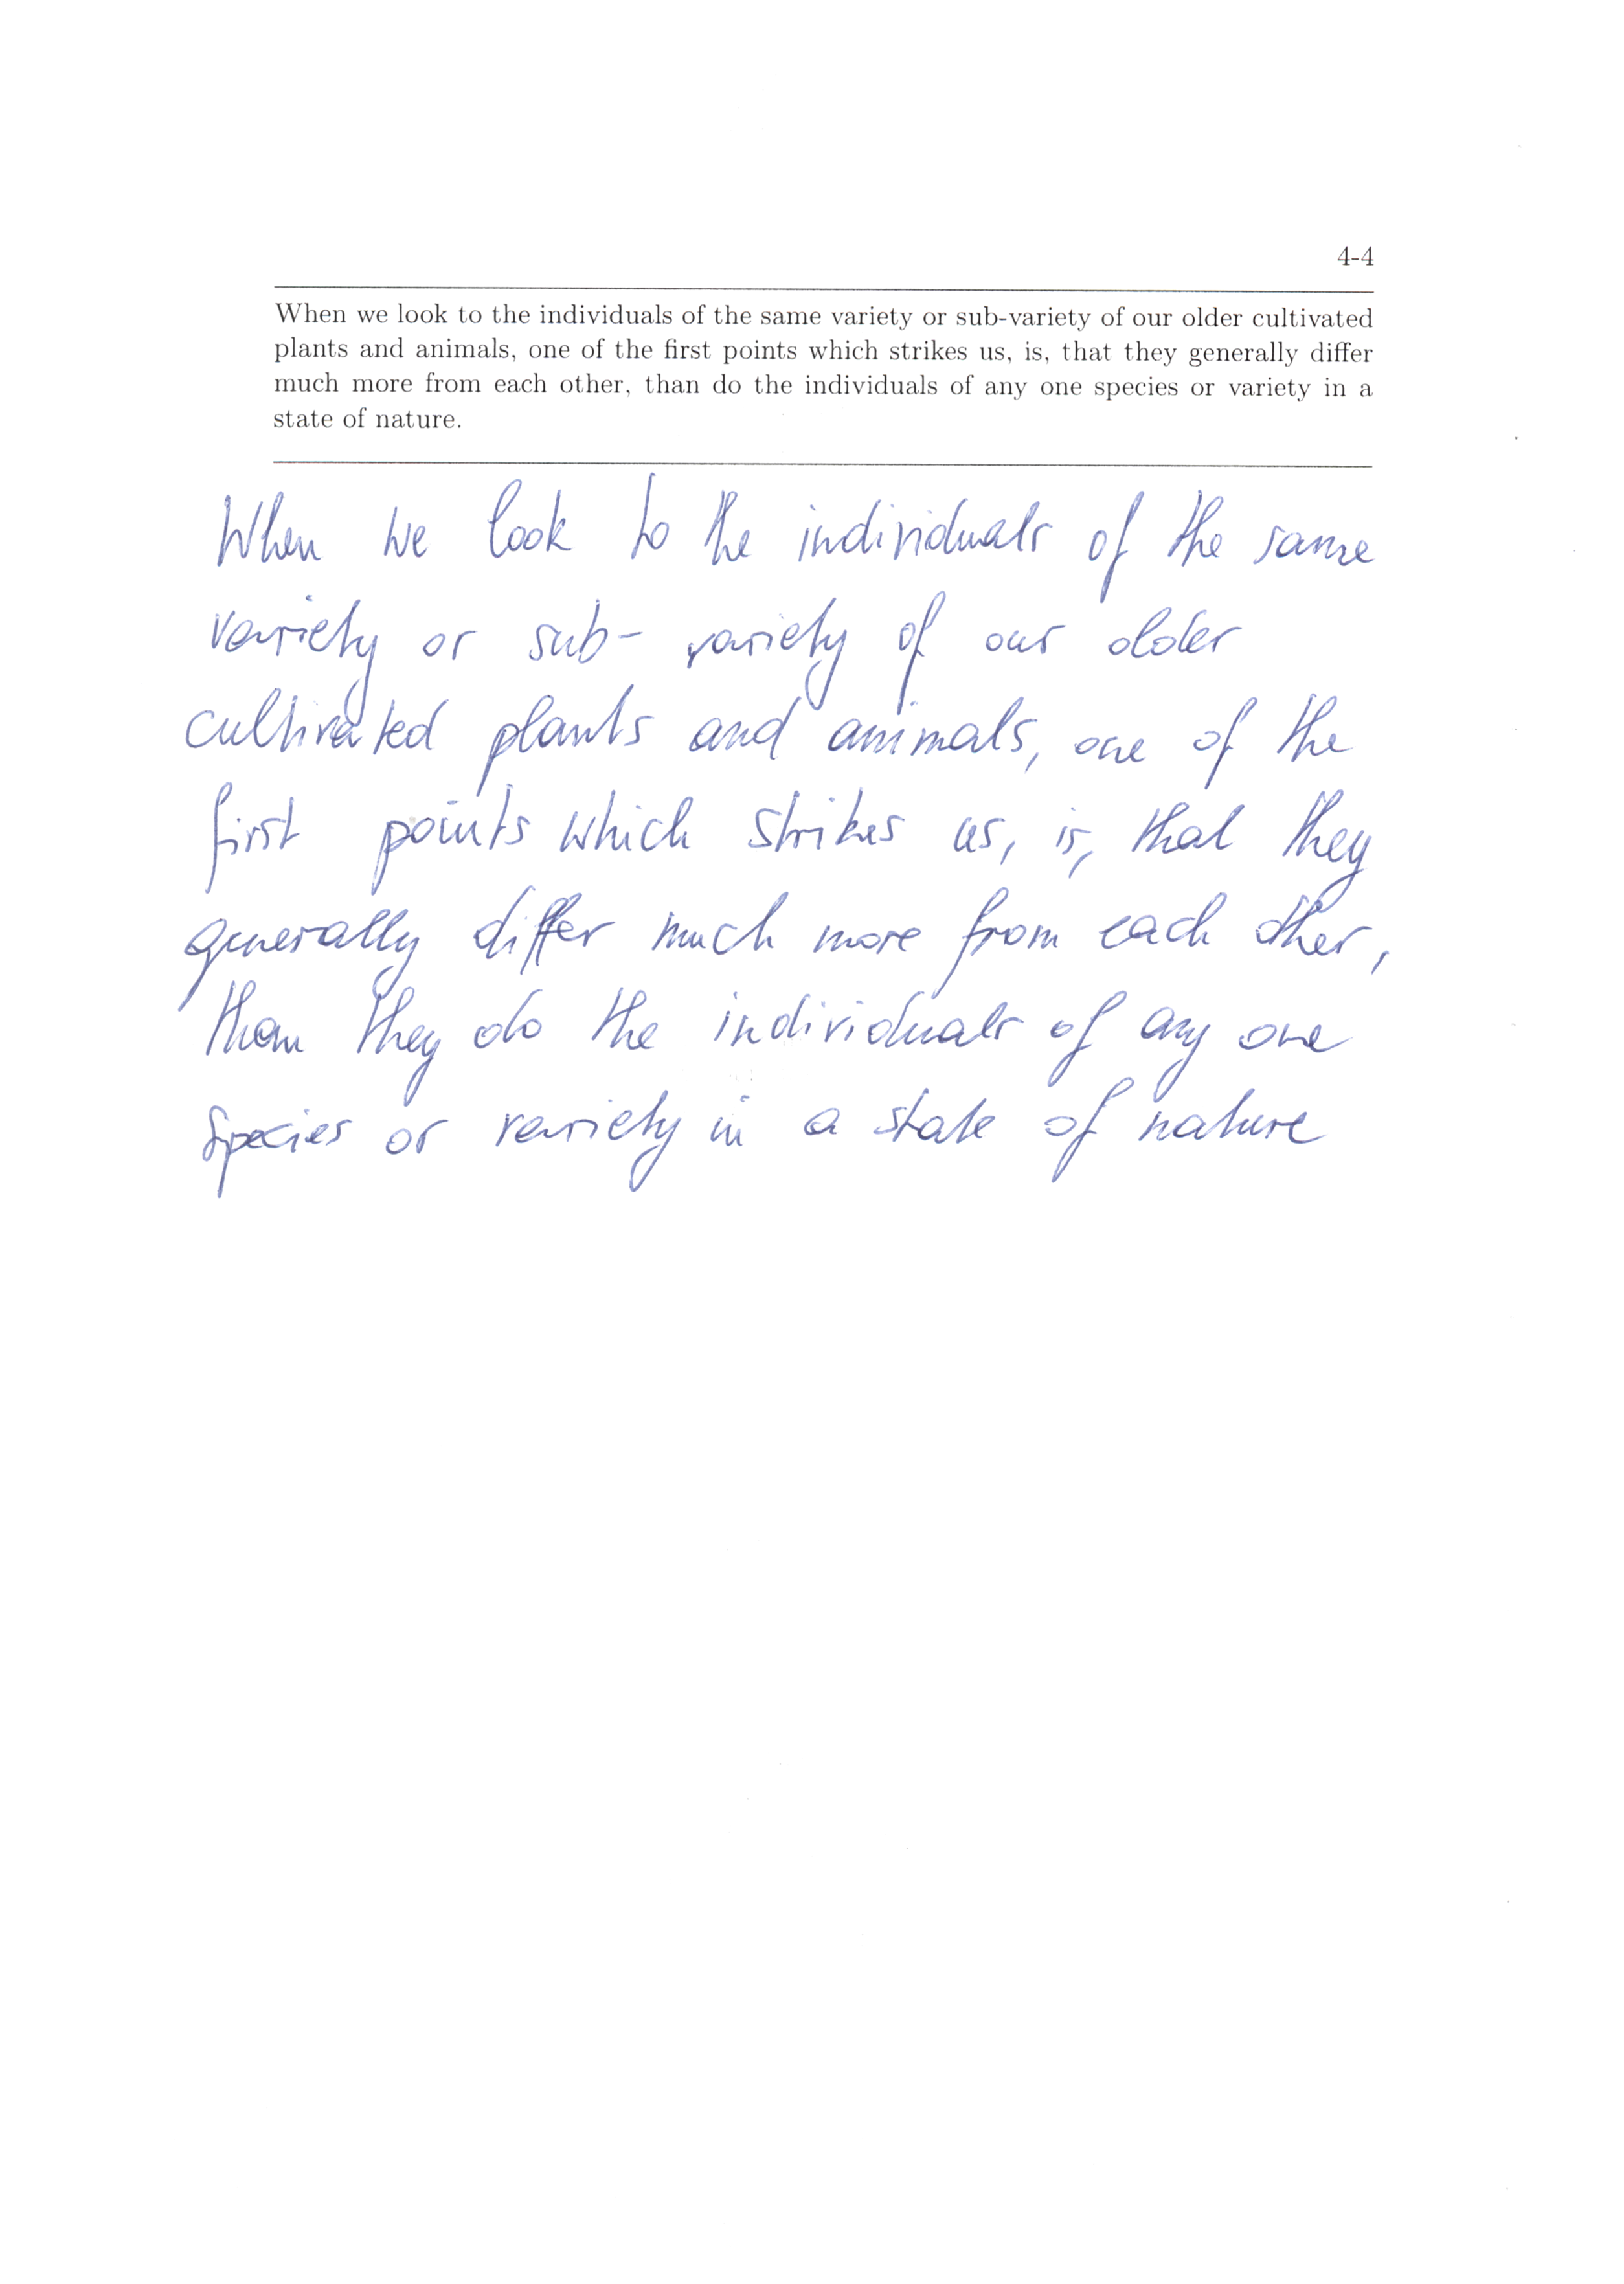 4-4
When we look to the individuals of the same variety or sub-variety of our older cultivated
plants and animals, one of the first points which strikes us, is, that they generally differ
much more from each other, than do the individuals of any one species or variety in a
state of nature.
When we look to the individuals of the same
variety or sub-variety of our older
cultivated plants and animals, one of the
first points which strikes us, is, that they
generally differ much more from each other,
than they do the individuals of any one
species or variety in a state of nature